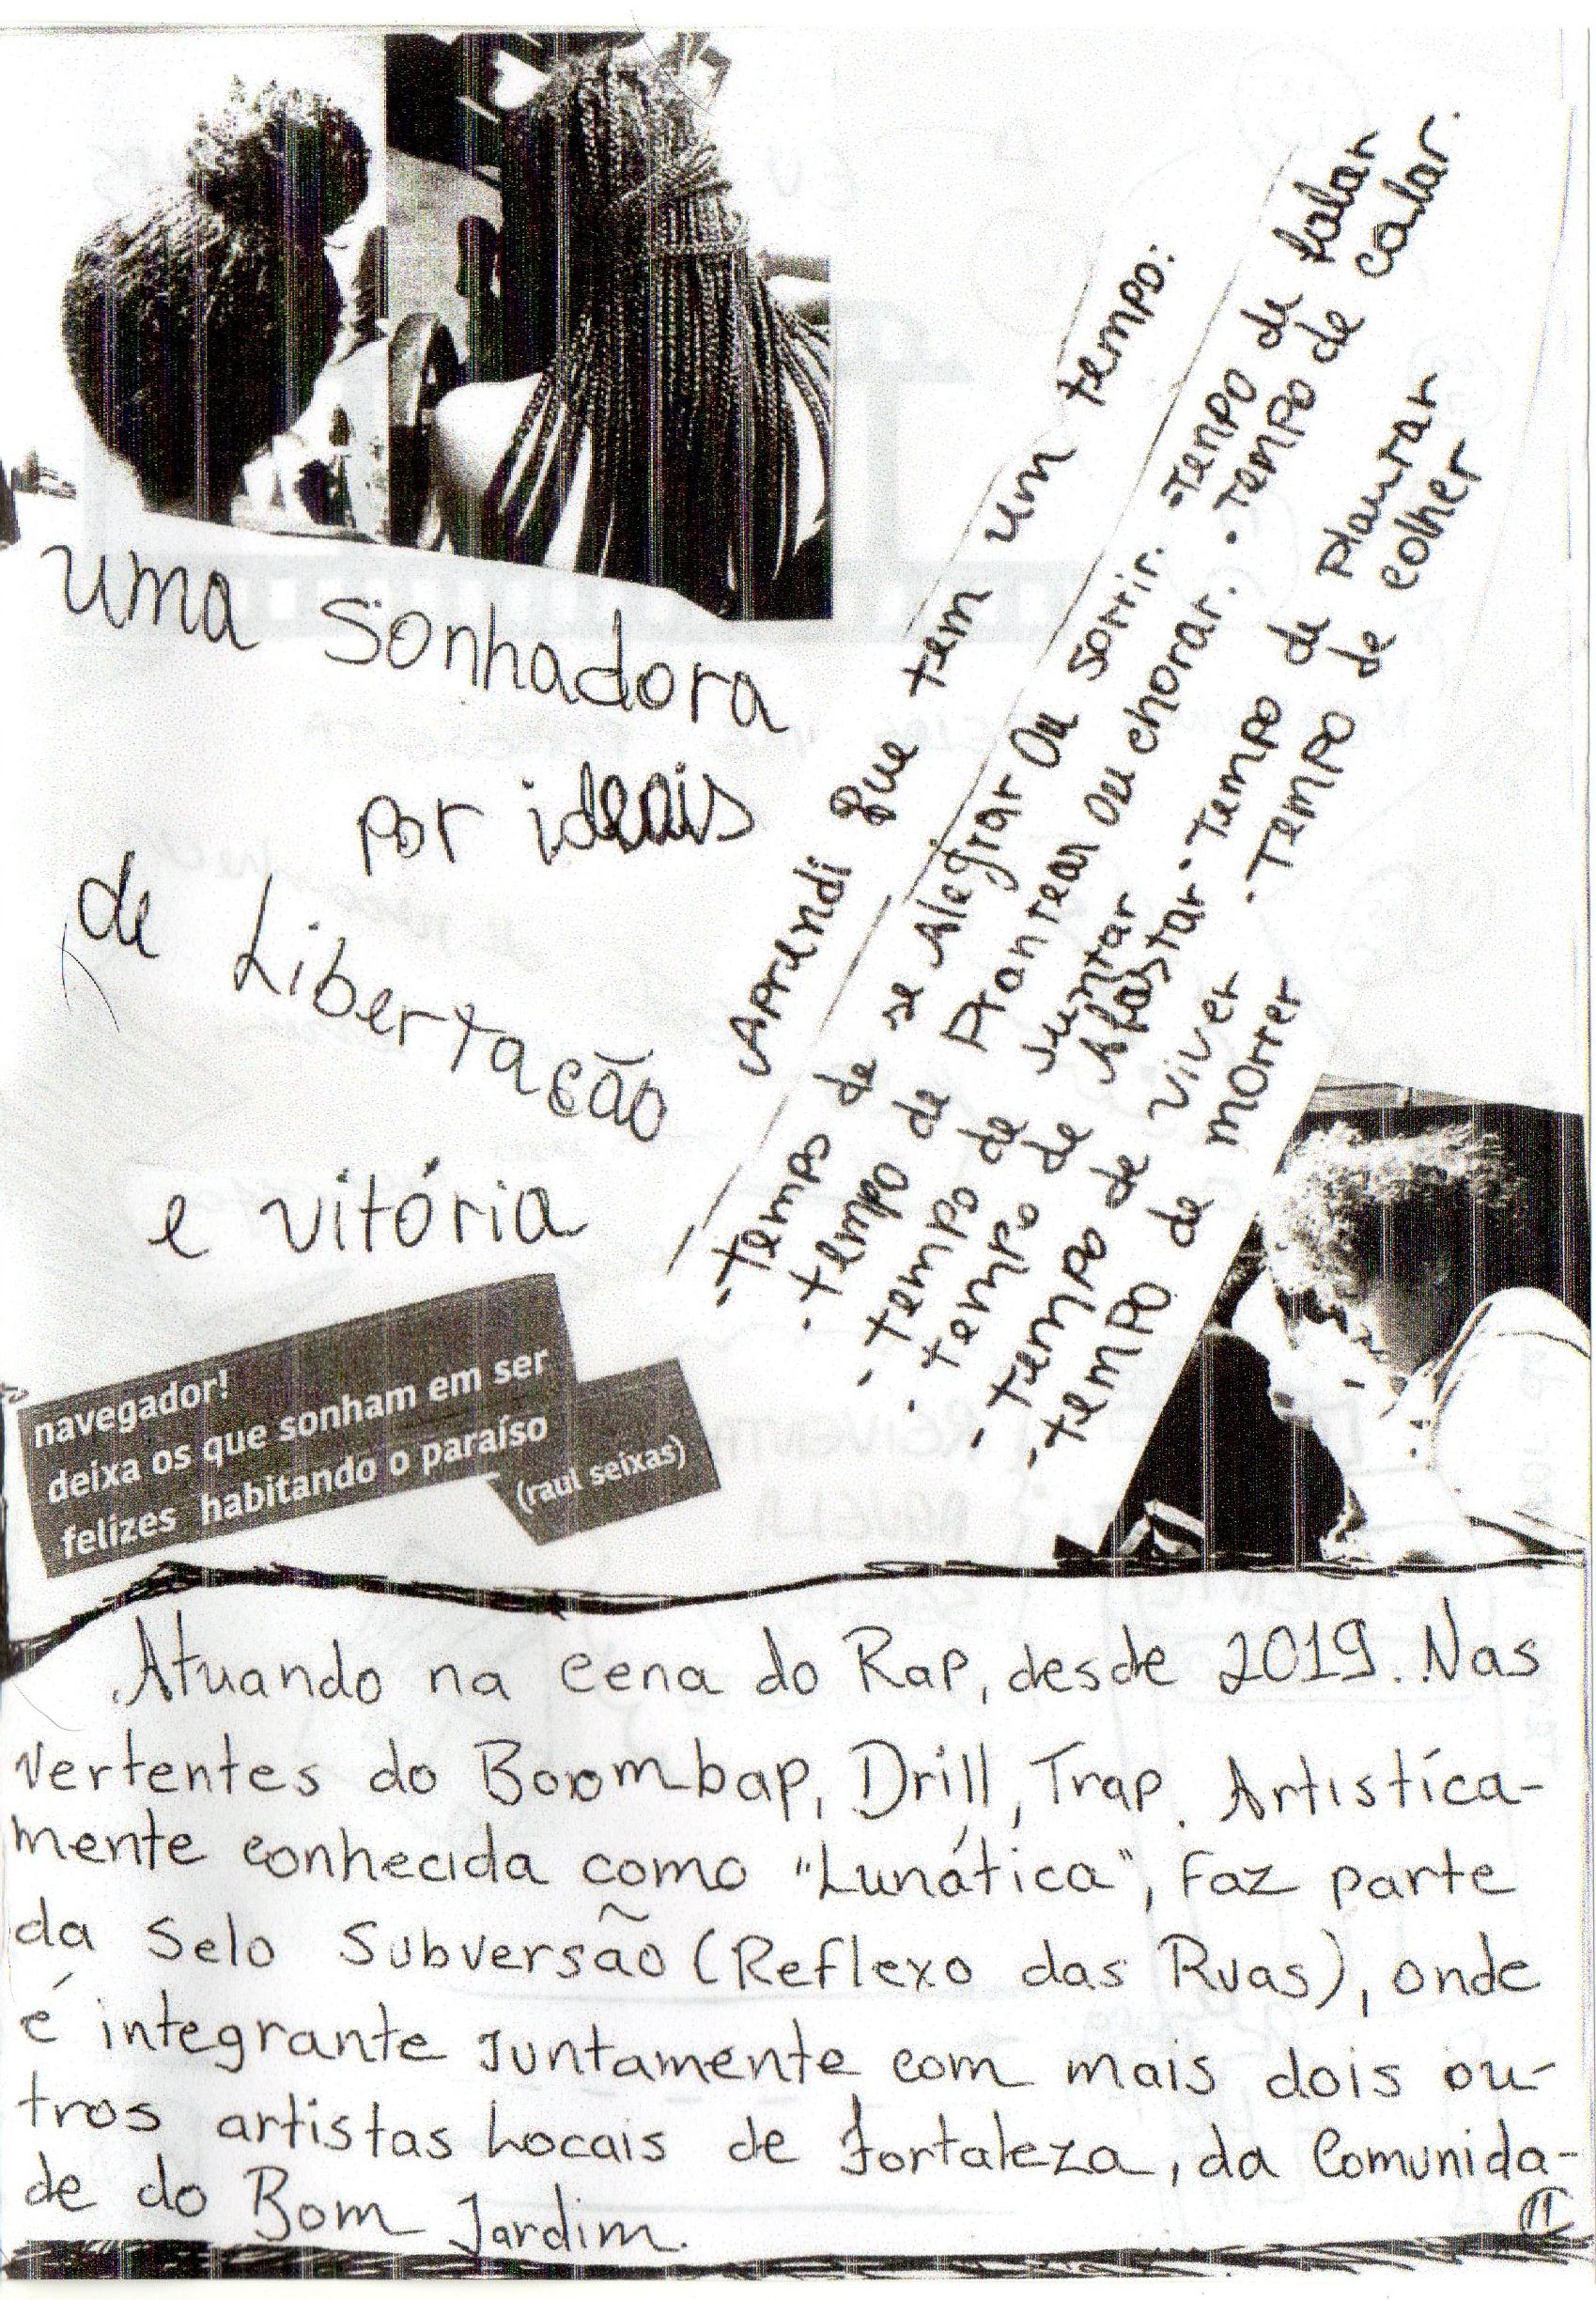 uma Sonhadora
por ideais
de Libertação
e vitória
Aprendi que tem um tempo:
·Tempo de se Alegrar ou sorrir.
·tempo de Prantear ou chorar.
·tempo de juntar
·tempo de Afastar
·tempo de viver
·tempo de morrer
·TEMPO de falar
·tempo de calar.
·Tempo de Plantar
·TEMPO de colher
navegador!
deixa os que sonham em ser
felizes habitando o paraíso
(raul seixas)
Atuando na cena do Rap, desde 2019. Nas
vertentes do Boombap, Drill, Trap. Artistíca-
mente conhecida como "Lunática", Faz parte
da Selo Subversão (Reflexo das Ruas), onde
é integrante Juntamente com mais dois ou-
tros artistas Locais de Fortaleza, da Comunida-
de do Bom Jardim.
11